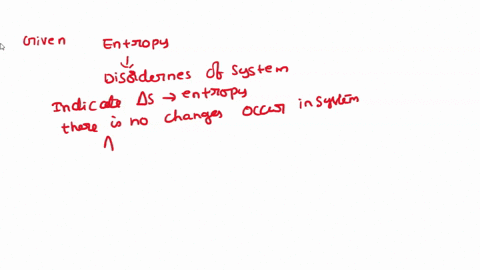 Given Entropy
↓
Disordernes of system
Indicate ΔS → entropy
there is no changes occur in system
Λ